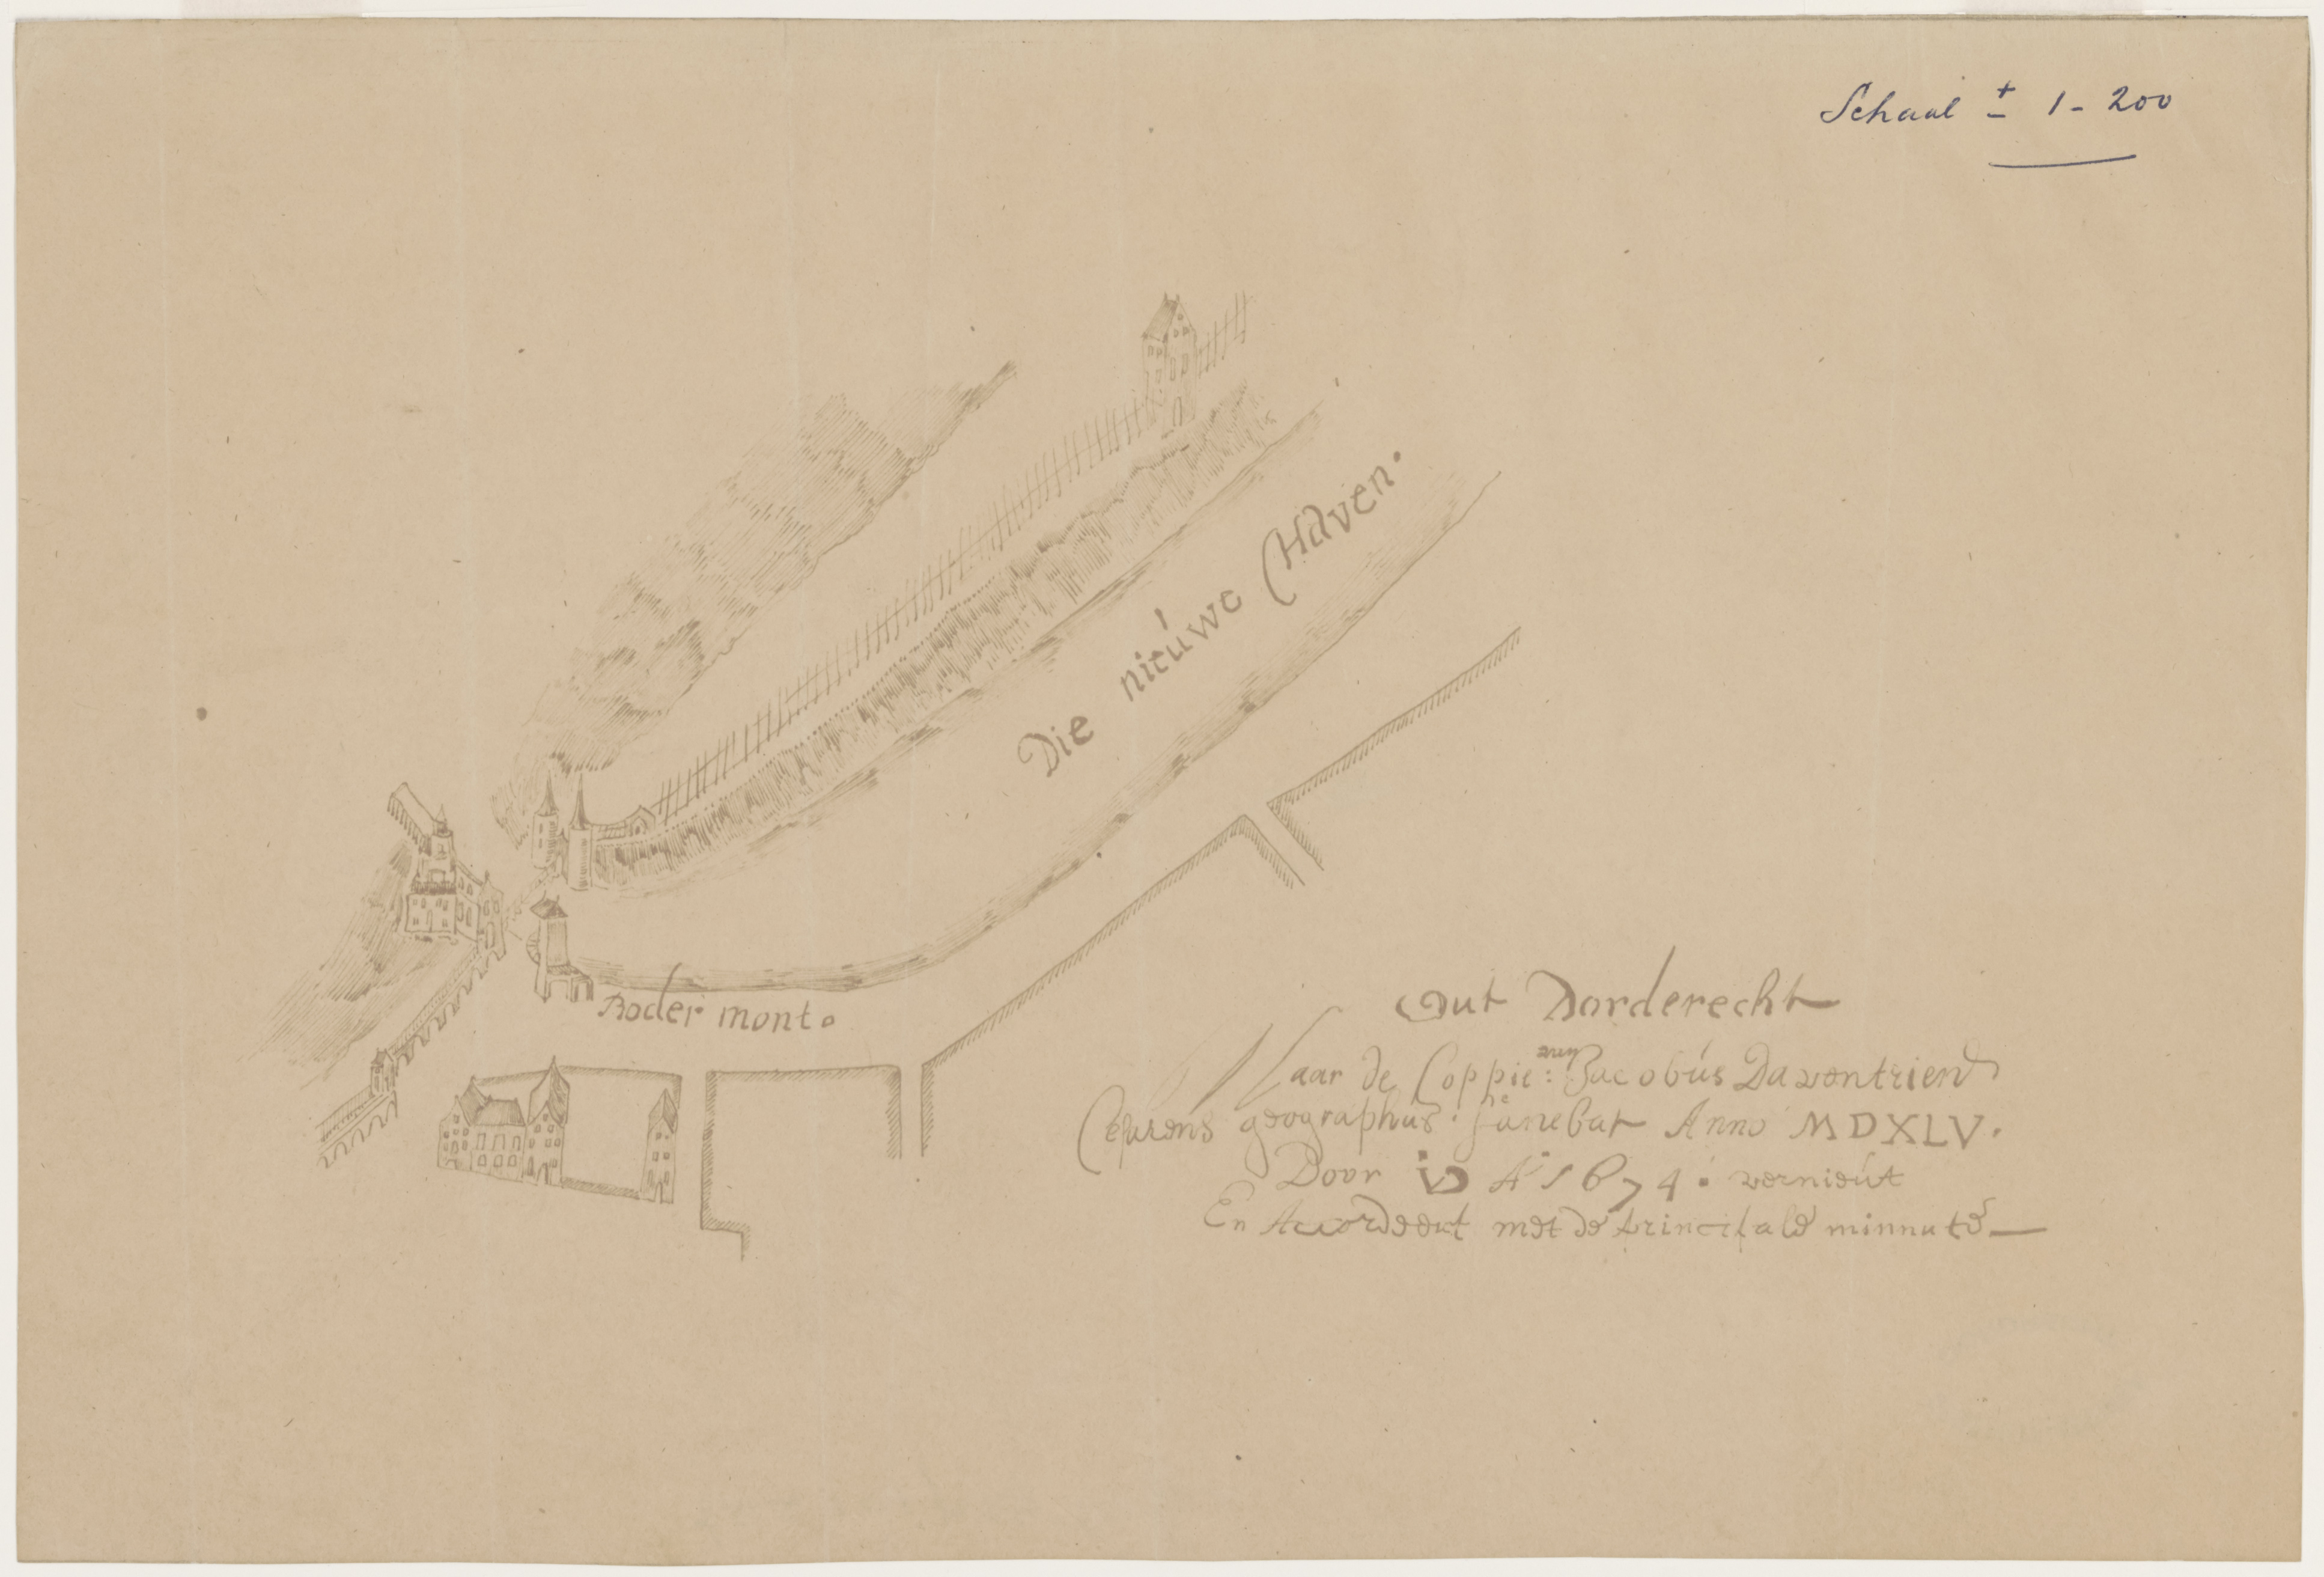 Schaal ± 1 - 200
Die nieúwe Haven.
Roder mont.
Out Dorderecht
Naar de Coppie: van Jacobús Daventrien
geographús Anno MDXLV.
Door A° 1674. vernieút
En Accordeert met de principale minnute